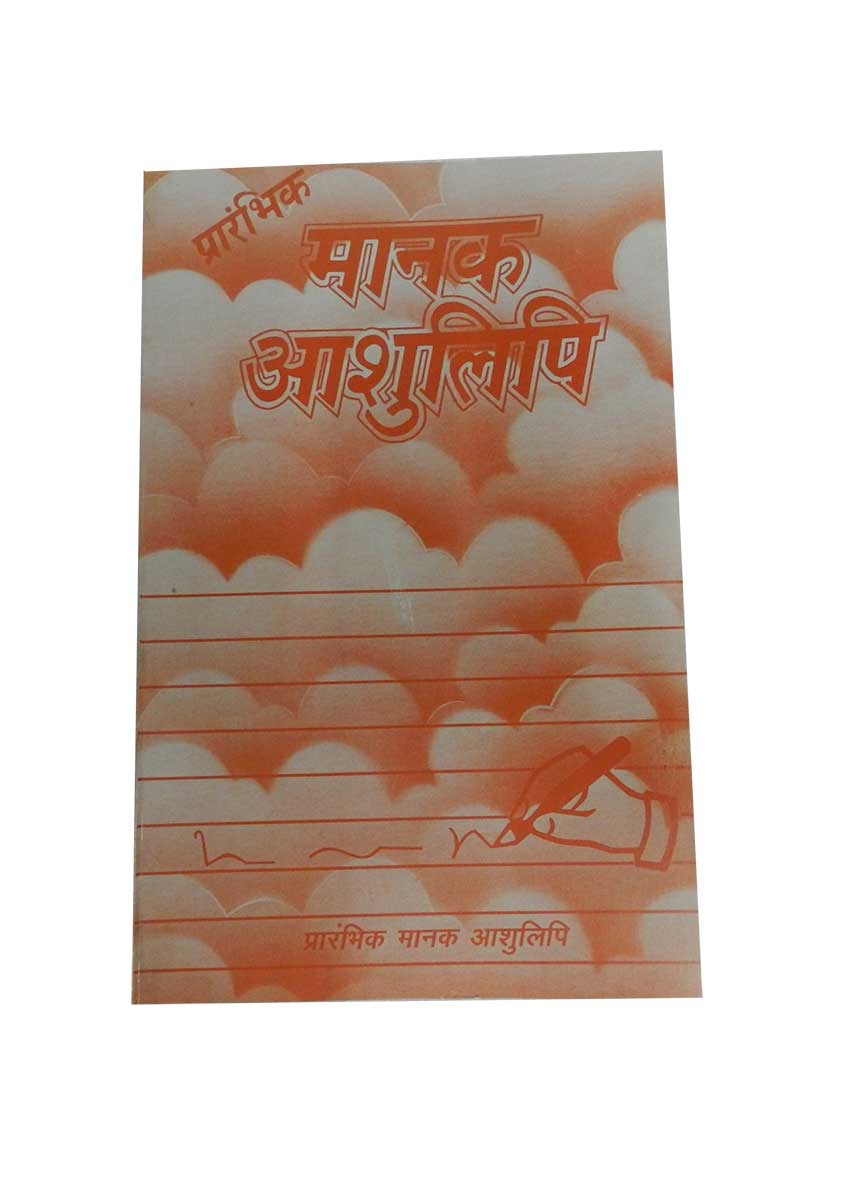 प्रारंभिक
मानक
आशुलिपि
प्रारंभिक मानक आशुलिपि